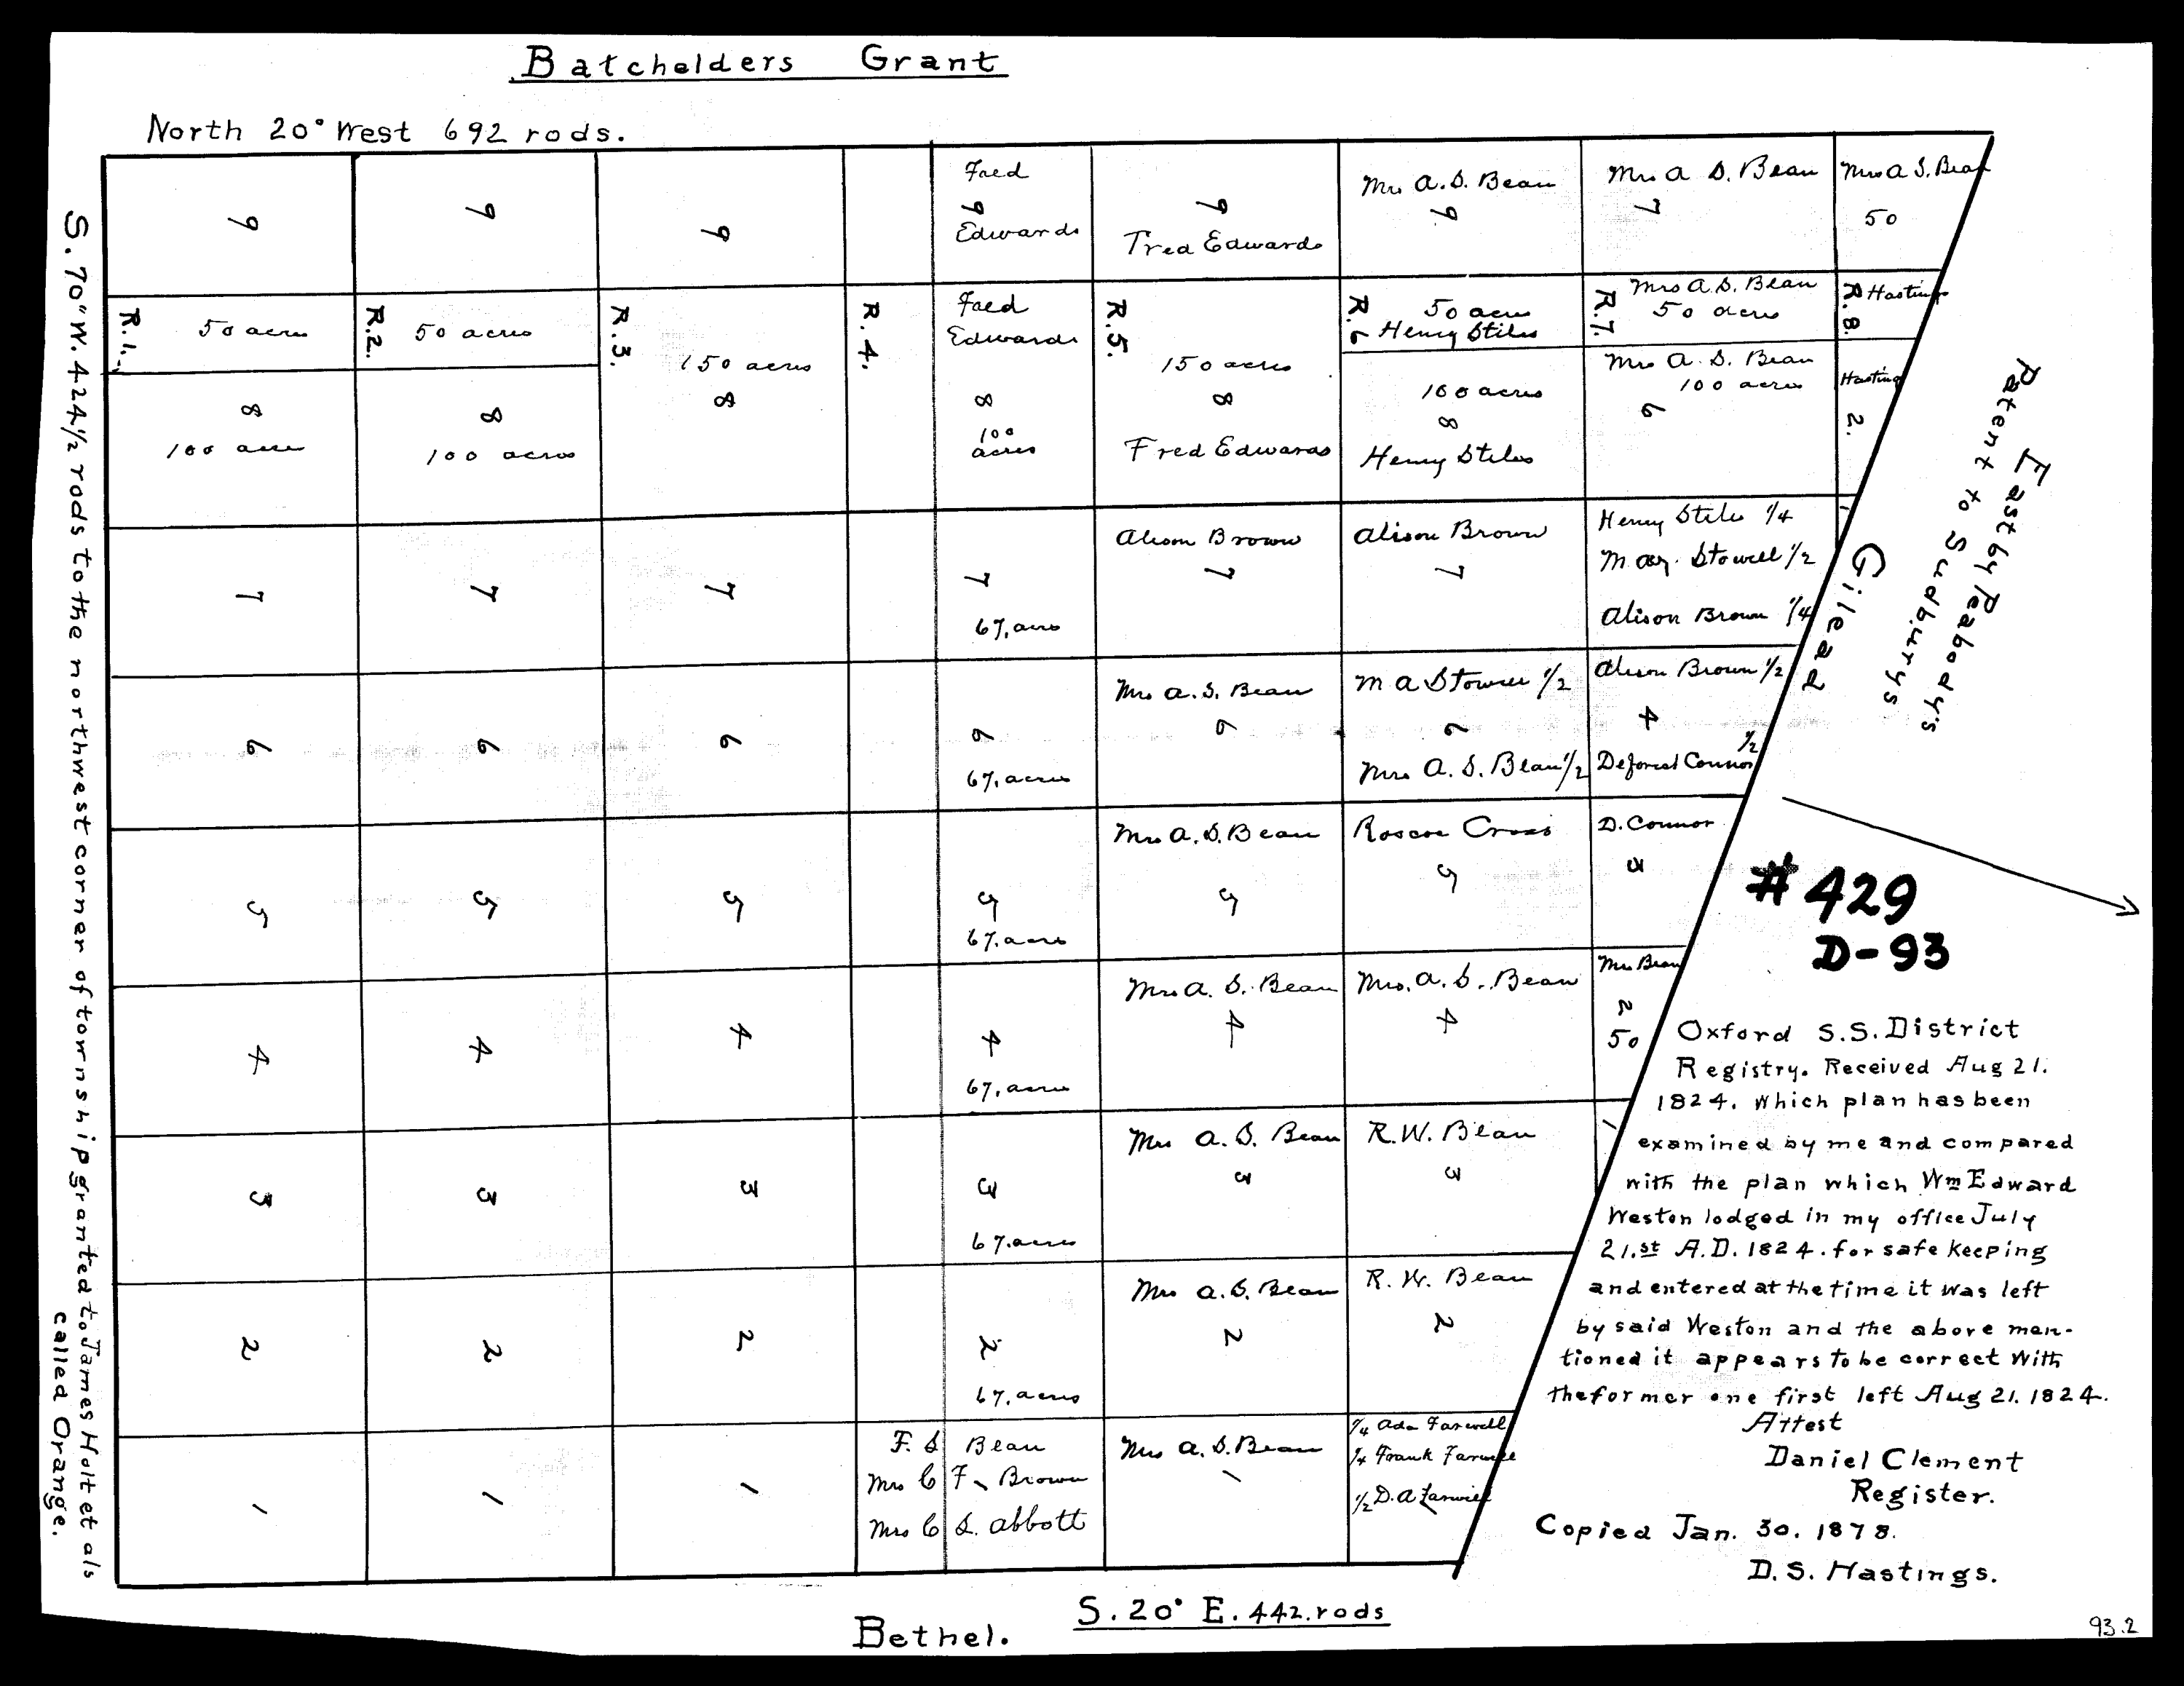 Batchelders Grant
North 20° West 692 rods.
S. 70° W. 424½ rods to the northwest corner of township granted to James Holt et als
called Orange.
9
9
9
Fred
9
Edwards
9
Fred Edwards
Mrs A. S. Bean
9
Mrs A S. Bean
7
Mrs A S. Bean
50
R. 1.
50 acres
8
100 acres
R. 2.
50 acres
8
100 acres
R. 3.
150 acres
8
R. 4.
Fred
Edwards
8
100
acres
R. 5.
150 acres
8
Fred Edwards
R. 6
50 acres
Henry Stiles
100 acres
8
Henry Stiles
R. 7.
Mrs A. S. Bean
50 acres
Mrs A. S. Bean
100 acres
6
R. 8.
Hastings
Hasting
2.
7
7
7
7
67. acres
Alison Brown
7
Alison Brown
7
Henry Stiles 1/4
Stowell 1/2
Alison Brown 1/4
1
6
6
6
6
67. acres
Mrs A. S. Bean
6
M A Stowell 1/2
6
Mrs A. S. Bean 1/2
Alison Brown 1/2
4
1/2
Deforest Connor
5
5
5
5
67. acres
Mrs A. S. Bean
5
Roscoe Cross
5
D. Connor
3
4
4
4
4
67. acres
Mrs A. S. Bean
4
Mrs. A. S. Bean
4
Mrs Bean
2
50
3
3
3
3
67. acres
Mrs A. S. Bean
3
R. W. Bean
3
1
2
2
2
2
67. acres
Mrs A. S. Bean
2
R. W. Bean
2
1
1
1
F. S Bean
Mrs C F. Brown
Mrs C S. Abbott
Mrs A. S. Bean
1
1/4 Ada Farwell
1/4 Frank Farwell
1/2 D. A Farwell
Gilead
East by Peabody's
Patent to Sudburys
# 429
D-93
Oxford S.S. District
Registry. Received Aug 21.
1824. Which plan has been
examined by me and compared
with the plan which Wm Edward
Weston lodged in my office July
21.st A.D. 1824. for safe keeping
and entered at the time it was left
by said Weston and the above men-
tioned it appears to be correct with
the former one first left Aug 21. 1824.
Attest
Daniel Clement
Register.
Copied Jan. 30. 1878.
D. S. Hastings.
S. 20° E. 442. rods
Bethel.
93.2